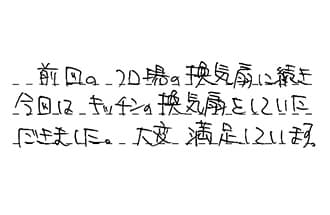 前回の フロ場の換気扇に続き
今回は キッチンの換気扇をしていた
だきました。大変 満足しています。